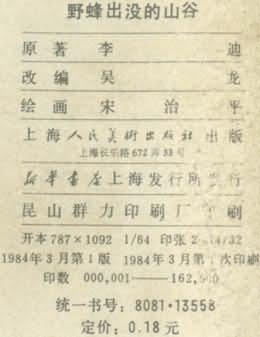 野蜂出没的山谷
原著 李迪
改编 吴龙
绘画 宋治平
上海人民美術出版社出版
上海长乐路672弄33号
新华書店上海发行所发行
昆山群力印刷厂印刷
开本787×1092 1/64 印张2 14/32
1984年3月第1版 1984年3月第 次印刷
印数 000,001——162,
统一书号：8081·13558
定价：0.18元